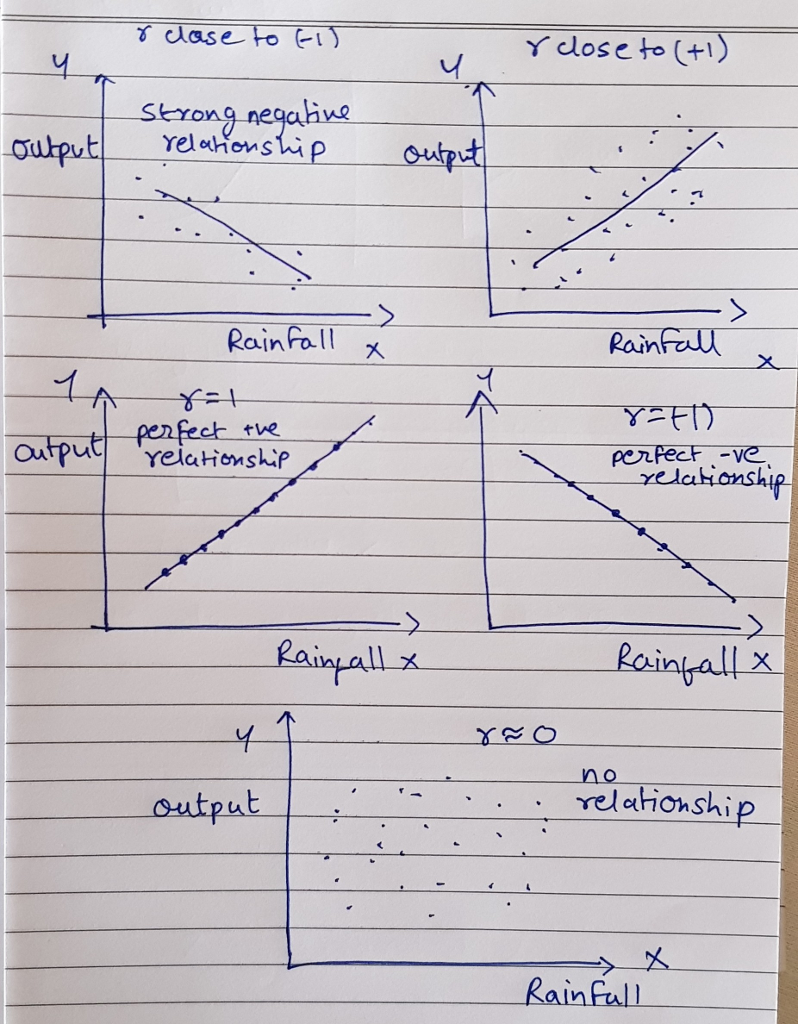 r close to (-1)
y
output
strong negative
relationship
Rainfall x
r close to (+1)
y
output
Rainfall x
y
output
r=1
perfect +ve
relationship
Rainfall x
y
r=(-1)
perfect -ve
relationship
Rainfall x
y
output
r≈0
no
relationship
x
Rainfall